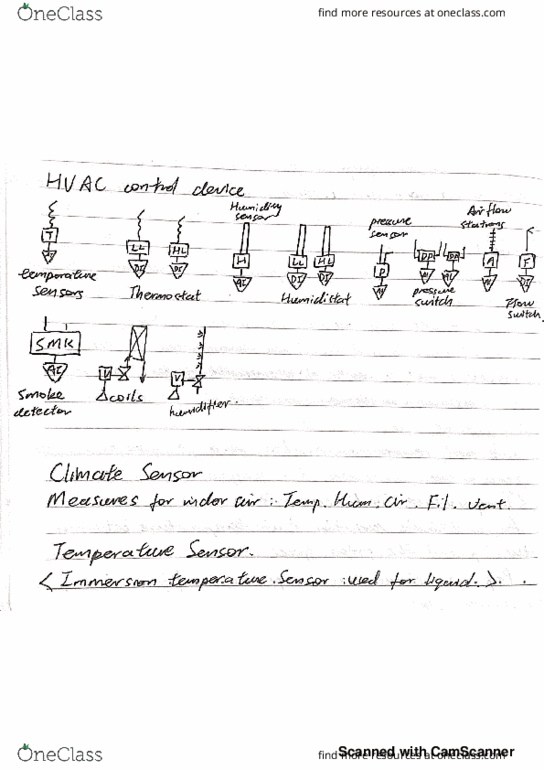 OneClass
find more resources at oneclass.com
HVAC control device
Humidity sensor
pressure sensor
Airflow stations
T
LL
HL
H
LL
HL
P
DP
DP
A
F
DI
DI
DI
DI
temperature sensors
Thermostat
Humidistat
pressure switch
Flow switch
SMK
V
V
smoke detector
coils
humidifier.
Climate Sensor
Measures for indor air : Temp. Hum. Air. Fil. Vent.
Temperature Sensor.
< Immersion temperature sensor : used for liquid. >.
OneClass
find more resources at oneclass.com
Scanned with CamScanner